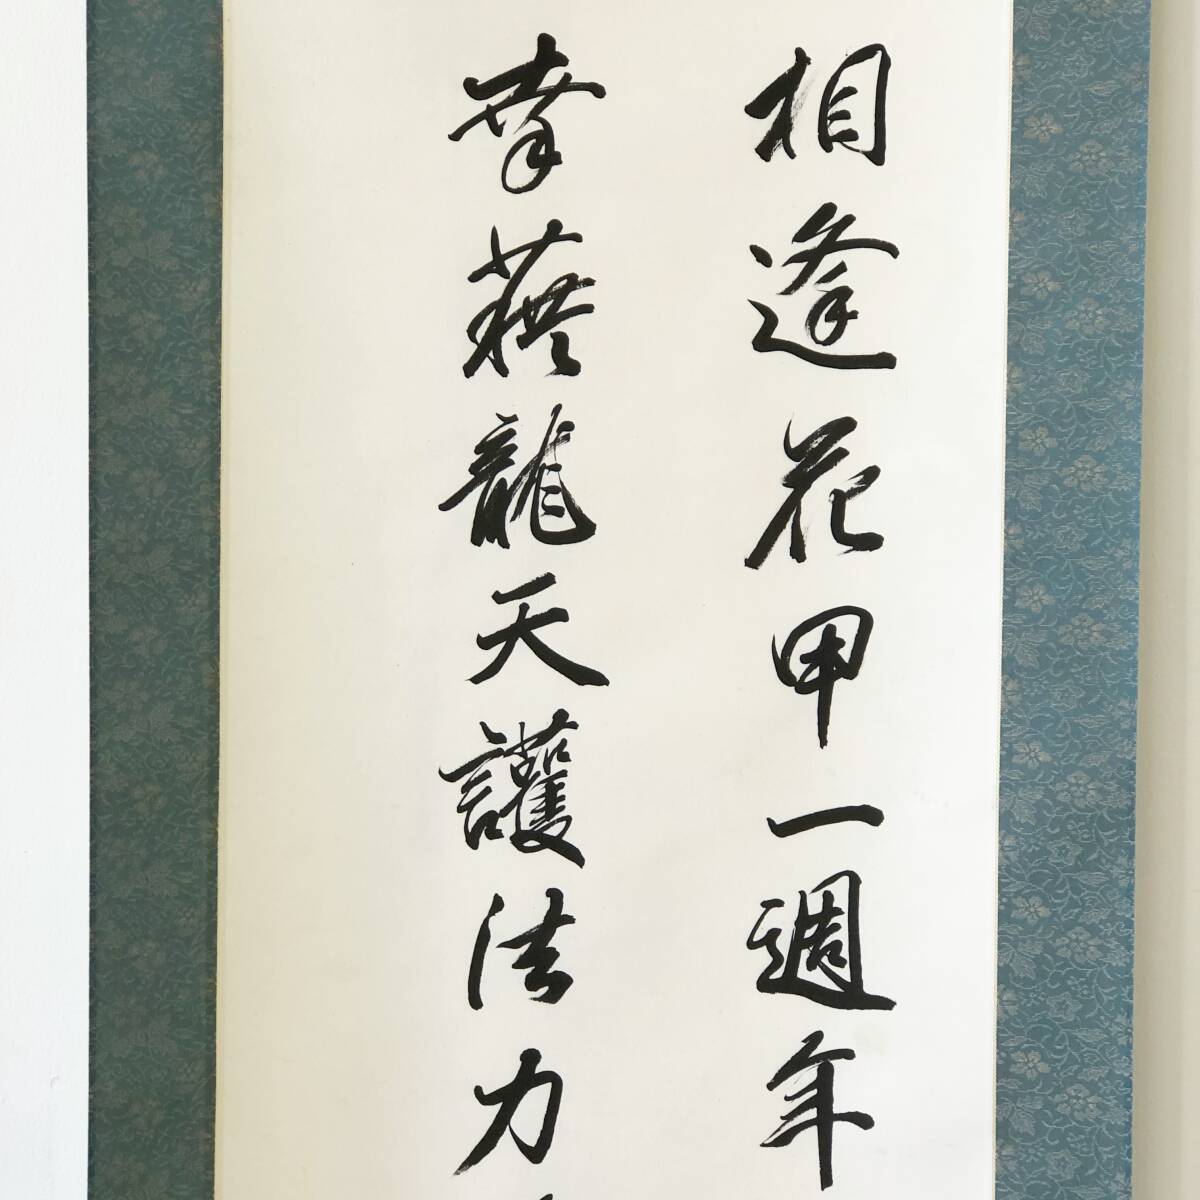 相逢花甲一週年
幸藉龍天護法力